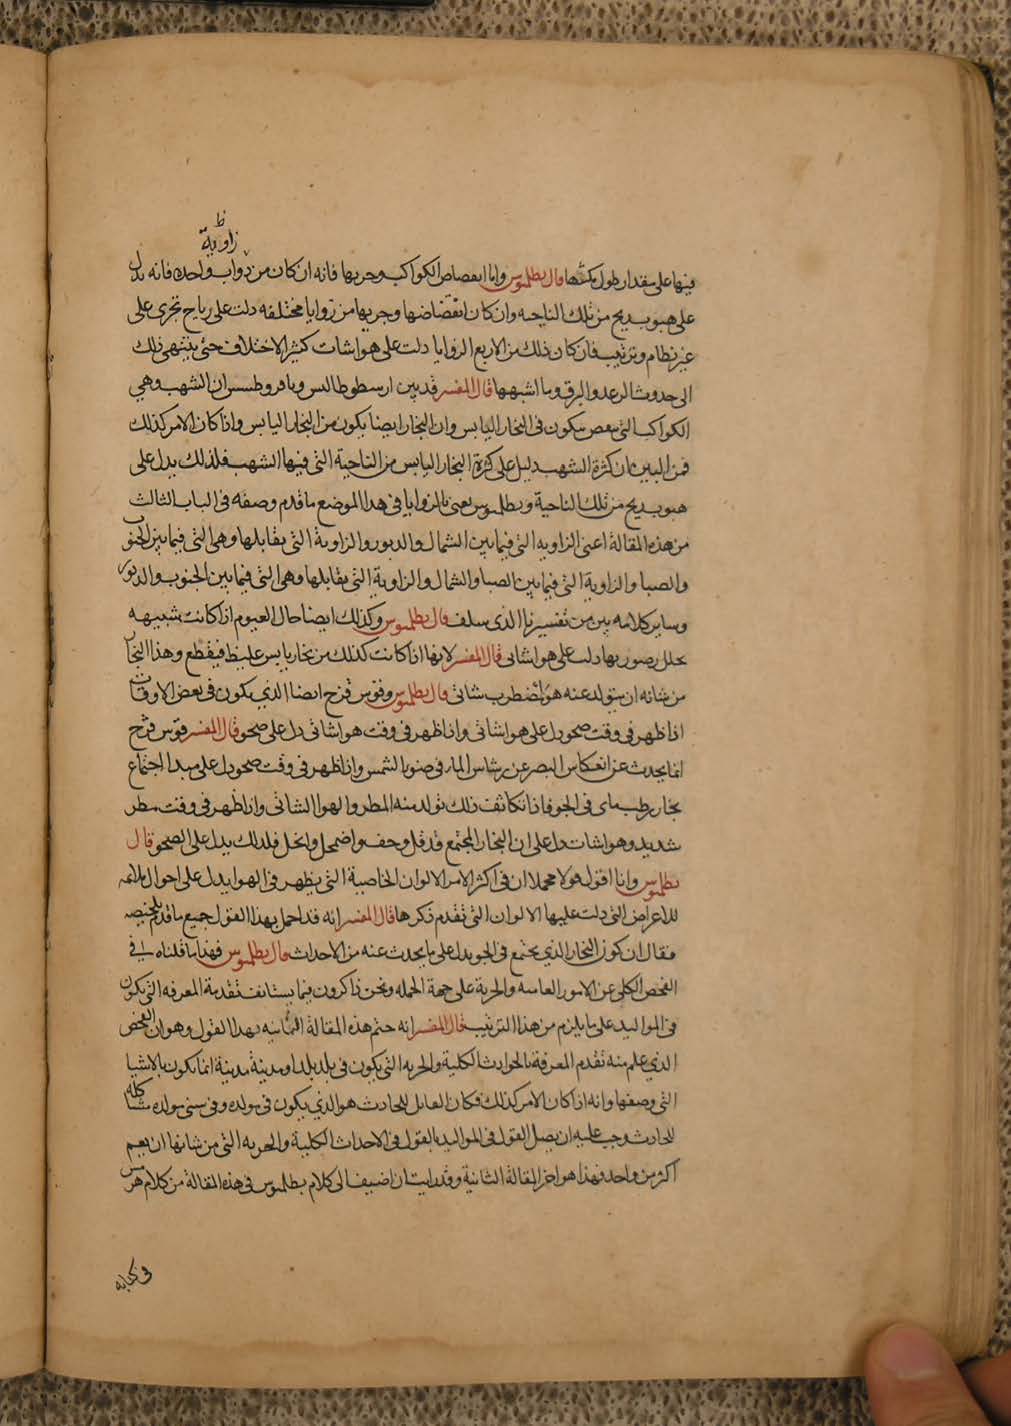 زاوية
فيها على مقدار طول مكثها قال بطلميوس واما انقضاض الكواكب وجريها فانه ان كان من زواية واحدة فانه يدل
على هبوب ريح من تلك الناحيه وان كان انقضاضها وجريها من زوايا مختلفه دلت على رياح تجرى على
غير نظام وترتيب فان كان ذلك من الاربع الزوايا دلت على هوا شات كثير الاختلاف حتى ينتهى ذلك
الى حدوث الرعد والبرق وما اشبهها قال المفسر قد بين ارسطوطالس ان الشهب وهي
الكواكب التى تنقض يتكون فى البخار اليابس وان البخار ايضا يكون من البخار اليابس واذا كان الامر كذلك
فمن البين ان كثرة الشهب دليل على كثرة البخار اليابس من الناحية التى فيها الشهب فلذلك يدل على
هبوب ريح من تلك الناحية وبطلميوس يعنى بالزوايا فى هذا الموضع ما قدم وصفه فى الباب الثالث
من هذه المقالة اعنى الزاويه التى فيما بين الشمال والدبور والزاوية التى يقابلها وهى التى فيما بين الجنوب
والصبا والزاوية التى فيما بين الصبا والشمال والزاوية التى يقابلها وهى التى فيما بين الجنوب والدبور
وساير كلامه بين من تفسيرنا الذى سلف قال بطلميوس وكذلك ايضا حال الغيوم اذا كانت شبيهه
بحلل بصوريها دلت على هوا شاتى قال المفسر لانها اذا كانت كذلك من بخار يابس غليظ فيقطع وهذا البخار
من شانه ان يتولد عنه هوا مضطرب شاتى قال بطلميوس وقوس قزح ايضا الذي يكون فى بعض الاوقات
اذا ظهر فى وقت صحو دل على هوا شاتى واذا ظهر فى وقت هوا شاتى دل على صحو قال المفسر قوس قزح
انما يحدث عن انعكاس البصر عن رشاس الما فى ضو الشمس واذا ظهر فى وقت صحو دل على مبدا اجتماع
بخار رطب ماى فى الجو فاذا تكاثف ذلك تولد منه المطر والهوا الشاتى واذا ظهر فى وقت مطر
شديد وهوا شات دل على ان البخار المجتمع قد قل وخف واضمحل وانحل فلذلك يدل على الصحو قال
بطلميوس وانا اقول قولا مجملا ان فى اكثر الامر الالوان الخاصية التى يظهر فى الهوا يدل على احوال ملايمه
للاعراض التى دلت عليها الالوان التى تقدم ذكرها قال المفسر انه قد اجمل بهذا القول جميع ما قدم تلخيصه
فقال ان كون البخار الذي يجتمع فى الجو يدل على ما يحدث عنه من الاحداث قال بطلميوس فهذا ما قلناه فى
الفحص الكلى عن الامور العاميه والجزية على جهة الجمله ونحن ذاكرون فيما يستانف تقدمة المعرفه التى تكون
فى المواليد على ما يلزم من هذا الترتيب قال المفسر انه ختم هذه المقالة الثانيه بهذا القول وهو ان الفحص
الذي علم منه تقدم المعرفة بالحوادث الكلية والجزيه التى يكون فى بلد بلد او مدينة مدينة انما تكون بالاشيا
التى وصفها وانه اذا كان الامر كذلك فكان القابل للحادث هو الذي يكون فى مولده وفى سنى مولده مشاكله
للحادث وجب عليه ان يصل القول فى المواليد بالقول فى الاحداث الكلية والجزيه التى من شانها ان يعم
اكثر من واحد فهذا هو اخر المقالة الثانية وقد رايت ان اضيف الى كلام بطلميوس فى هذه المقالة من كلام هرمس
فى كتابه